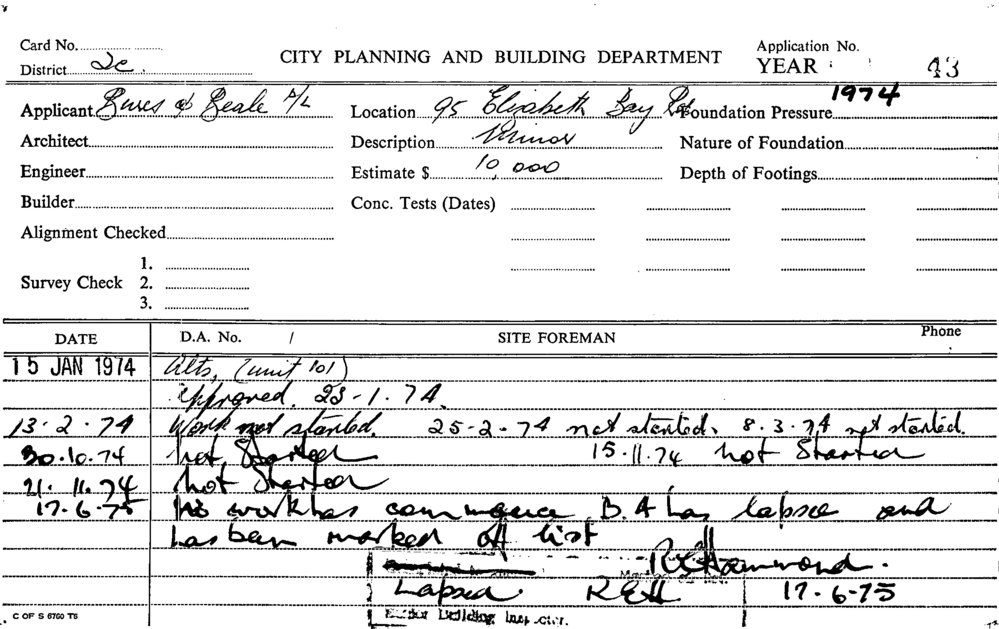 Card No.
District 2c.
CITY PLANNING AND BUILDING DEPARTMENT
Application No.
YEAR 43
1974
Applicant & Beale P/L
Location 95 Elizabeth Bay Rd
Foundation Pressure
Architect
Description Minor
Nature of Foundation
Engineer
Estimate $ 10,000
Depth of Footings
Builder
Conc. Tests (Dates)
Alignment Checked
Survey Check 1.
2.
3.
DATE D.A. No. / SITE FOREMAN Phone
15 JAN 1974 Alts, (unit 101)
approved. 23-1.74.
13-2-74 Work not started. 25-2-74 not started. 8.3.74 not started.
30.10.74 not Started 15.11.74 not Started
21.11.74 not Started
17.6.75 No work has commence B.A has lapse and
has been marked off list
R E Hammond.
Lapsed REH 17-6-75
Building Inspector.
C OF S 6760 T6